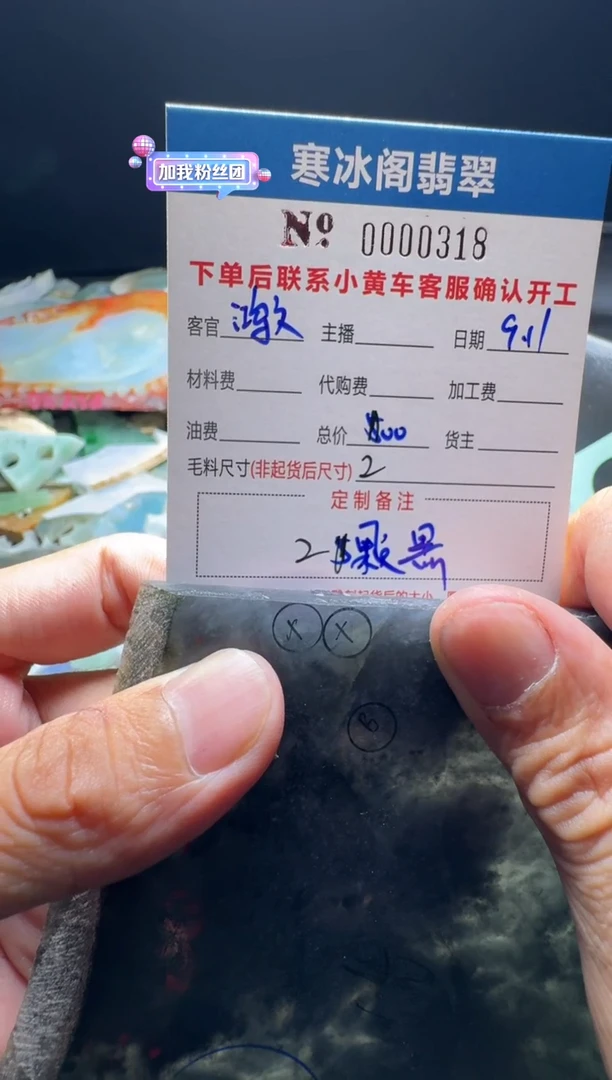 加我粉丝团
寒冰阁翡翠
Nº 0000318
下单后联系小黄车客服确认开工
客官 鸿文 主播 日期 9.11
材料费 代购费 加工费
油费 总价 货主
毛料尺寸(非起货后尺寸) 2
定制备注
2 颗黑
X X
B